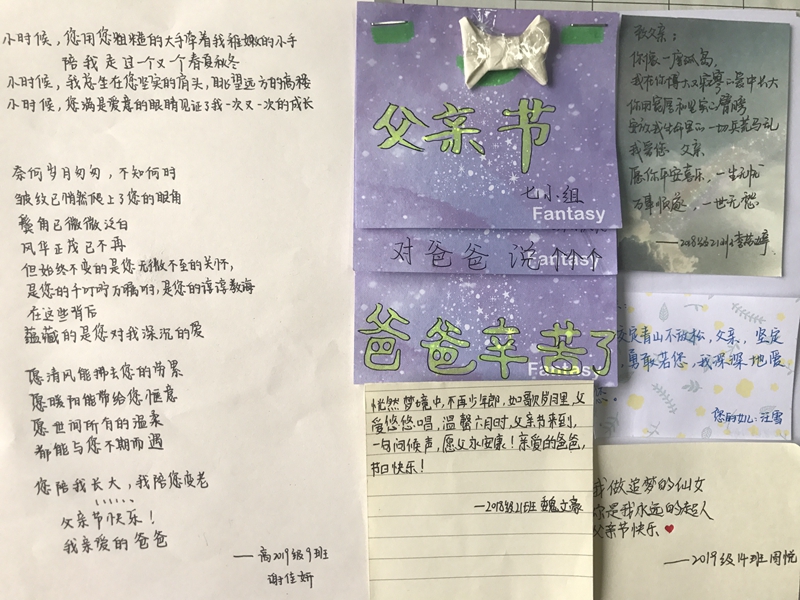 小时候，您用您粗糙的大手牵着我稚嫩的小手
陪我走过一个又一个春夏秋冬
小时候，我总坐在您坚实的肩头，眺望远方的高楼
小时候，您满是爱意的眼睛见证了我一次又一次的成长
奈何岁月匆匆，不知何时
皱纹已悄然爬上了您的眼角
鬓角已微微泛白
风华正茂已不再
但始终不变的是您无微不至的关怀，
是您的千叮咛万嘱咐，是您的谆谆教诲
在这些背后
蕴藏的是您对我深沉的爱
愿清风能拂去您的劳累
愿暖阳能带给您惬意
愿世间所有的温柔
都能与您不期而遇
您陪我长大，我陪您变老
······
父亲节快乐！
我亲爱的爸爸
——高2019级9班
谢佳妍
父亲节
七小组
Fantasy
对爸爸说个个
Fantasy
爸爸辛苦了
Fantasy
恍然梦境中，不再少年郎，如歌岁月里，父
爱悠悠唱，温馨六月时，父亲节来到，
一句问候声，愿父永安康！亲爱的爸爸，
节日快乐！
—2018级21班 魏文豪
致父亲：
你像一座孤岛，
我在你博大又寂寥的
中长大
你用宽厚和坚实的臂膀
我生命里的一切兵荒马乱
我爱您 父亲
愿你平安喜乐，一生无忧
万事顺遂，一世无愁
——2018级21班李
定青山不放松，父亲，坚定
，勇敢若您，我深深地爱
您的女儿：汪雪
我做追梦的仙女
你是我永远的超人
父亲节快乐♥
——2019级14班周悦